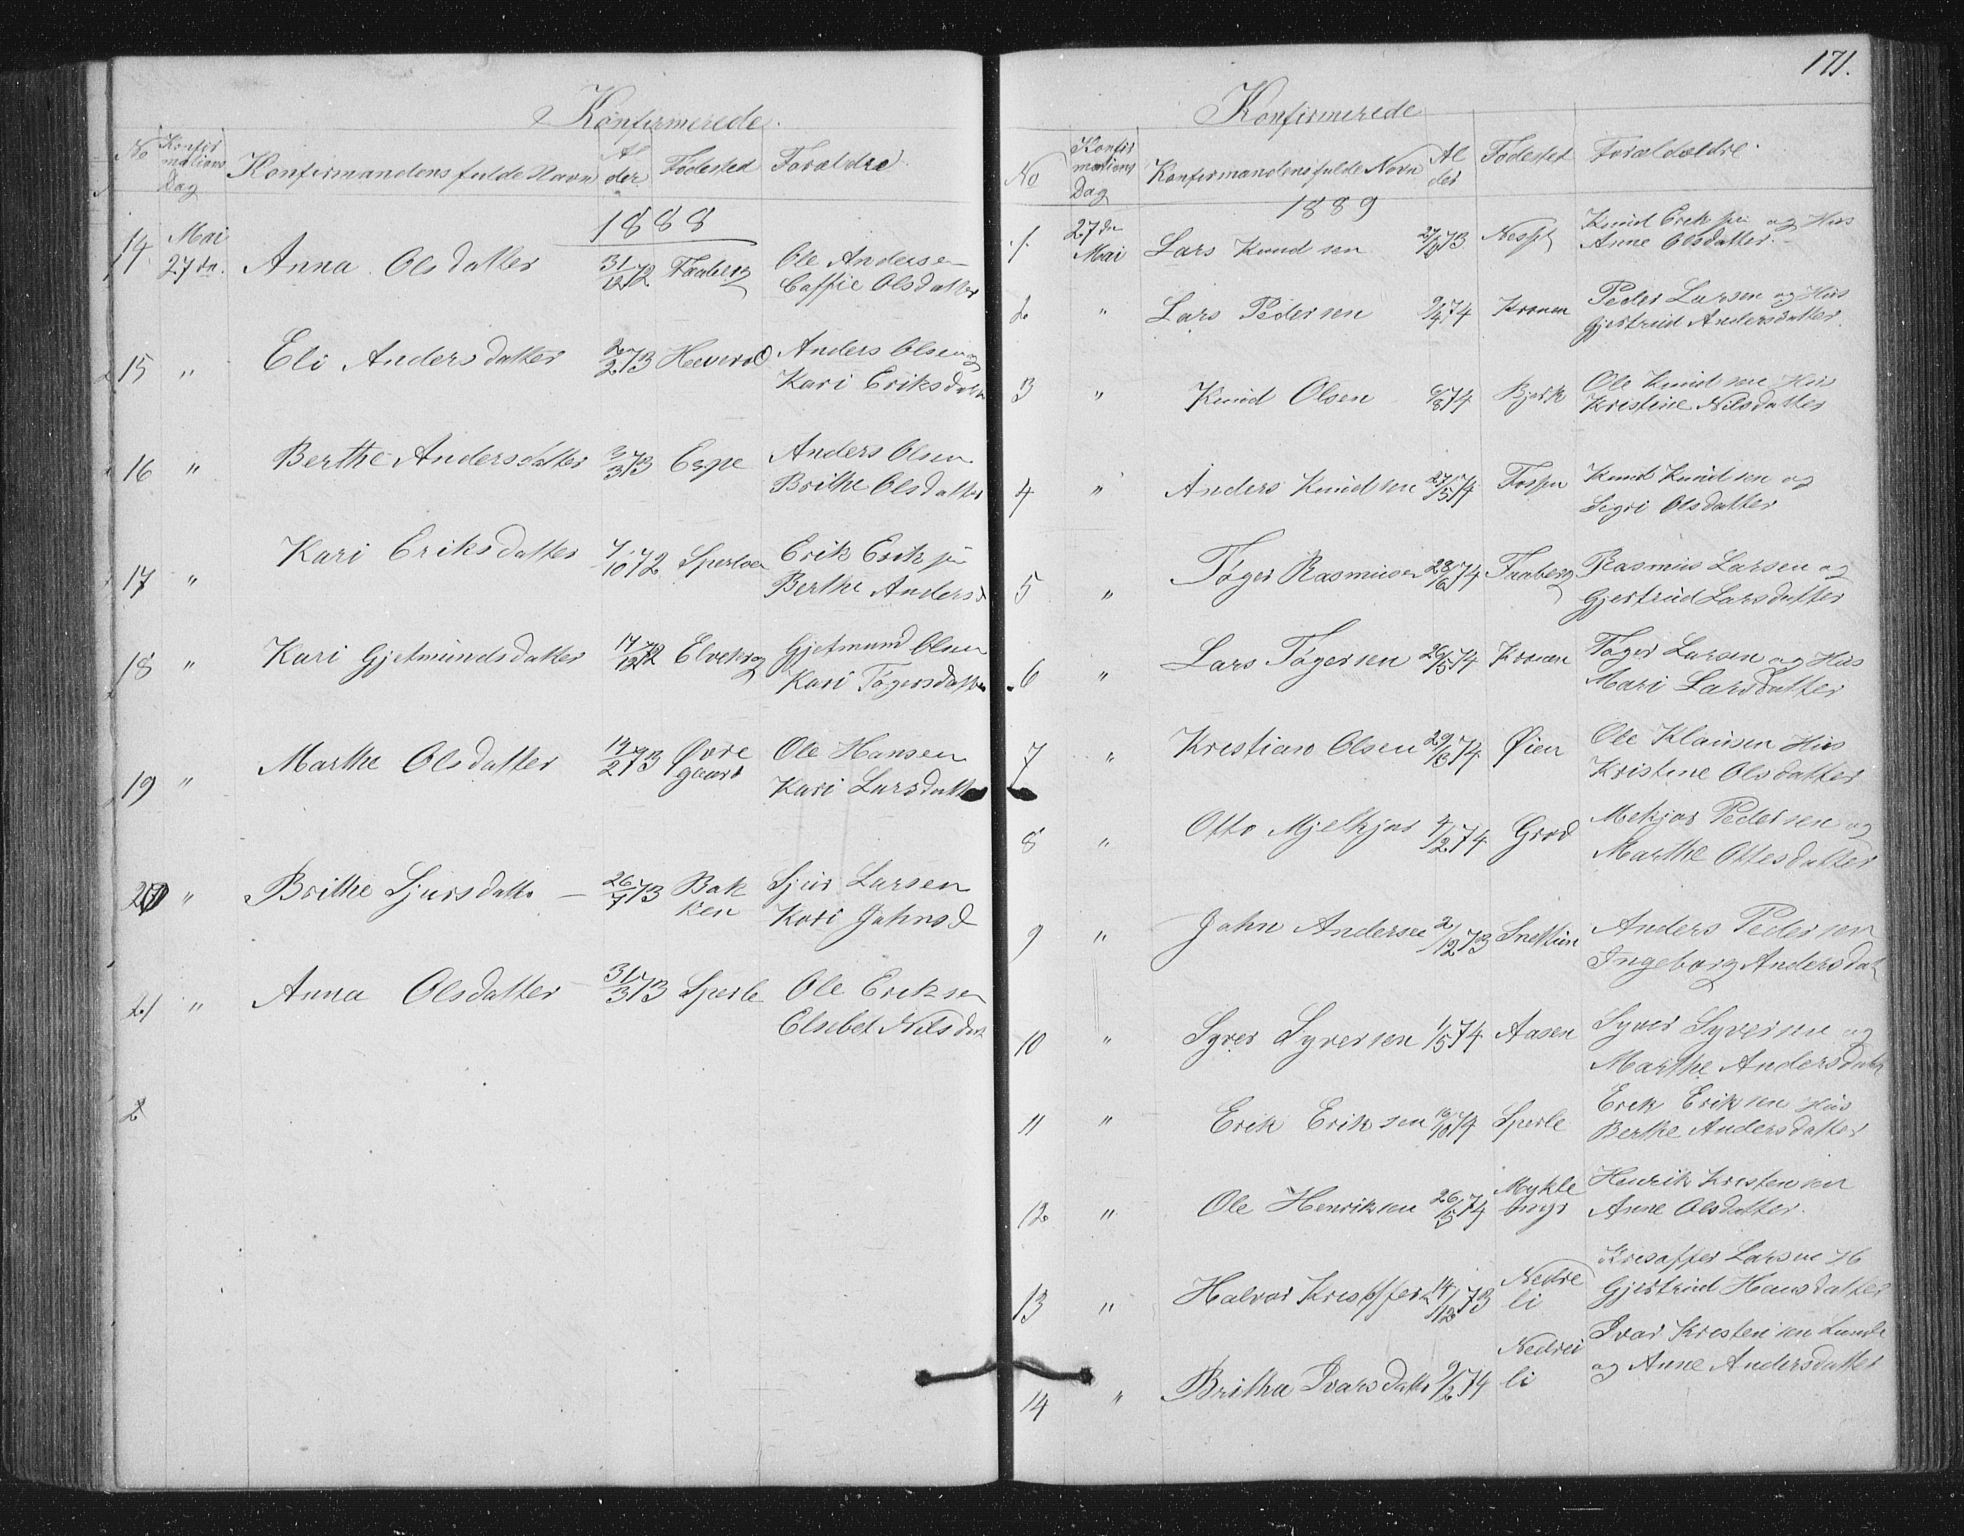 Konfirmerede.
No Konfirmations Dag Konfirmandens fulde Navn Alder Fødested Forældre
1888
14 Mai 27de. Anna Olsdatter 31/12 72 Faaberg Ole Andersen
Olsdatter
15 " Eli Andersdatter 2/2 73 Anders Olsen og
Kari Eriksdatter
16 " Berthe Andersdatter 3/3 73 Espe Anders Olsen
Brithe Olsdatter
17 " Kari Eriksdatter 7/10 72 Sperleen Erik Erik
Berthe Andersd
18 " Kari Gjetmundsdatter 17/12 72 Gjetmund Olsen
Kari Tøgersdatter
19 " Marthe Olsdatter 19/2 73 Øvre Ole Hansen
gaard Kari Larsdatter
20 " Brithe Sjursdatter 26/7 73 Bak Sjur Larsen
ken Kari Jahnsd
21 " Anna Olsdatter 31/3 73 Sperle Ole Eriksen
Elsebet Nilsdat
2
171.
Konfirmerede
No Konfirmations Dag Konfirmandens fulde Navn Alder Fødested Forældre
1889
1 27de Mai Lars Knudsen 73 Knud Erik og Hus
Anne Olsdatter.
2 " Lars Pedersen 9/4 74 Kronen Peder Larsen og Hus
Gjertrud Andersdatter.
3 " Knud Olsen 6/8 74 Bjerk Ole Knudsen Hus
Kristine Nilsdatter
4 " Anders Knudsen 27/5 74 Knud Knudsen og
Sigri Olsdatter
5 " Tøger Rasmusen 28/6 74 Faaberg Rasmus Larsen og
Gjertrud Larsdatter
6 " Lars Tøgersen 26/5 74 Kronen Tøger Larsen og Hus
Mari Larsdatter
7 " Kristian Olsen 29/6 74 Øien Ole Klausen Hus
Kristine Olsdatter
8 " Otto Mjelkjar 4/2 74 Grod Mekjar Pedersen og
Marthe Ottesdatter
9 " Jahn Andersen 2/12 73 Snettun Anders Pedersen
Ingeborg Andersdat
10 " Syver Syversen 1/5 74 Aasen Syver Syversen og
Marthe Andersdatter
11 " Erik Eriksen 74 Sperle Erik Eriksen Hus
Berthe Andersdatter
12 " Ole Henriksen 26/5 74 Mykle Henrik Kristensen
myr Anne Olsdatter.
13 " Halvor Kristoffer 14/12 73 Nedre Larsen
li Gjertrud Hansdatter
14 " Britha Ivarsdatter 9/2 74 Nedrei Ivar Kristensen Lunde
li og Anne Andersdatter